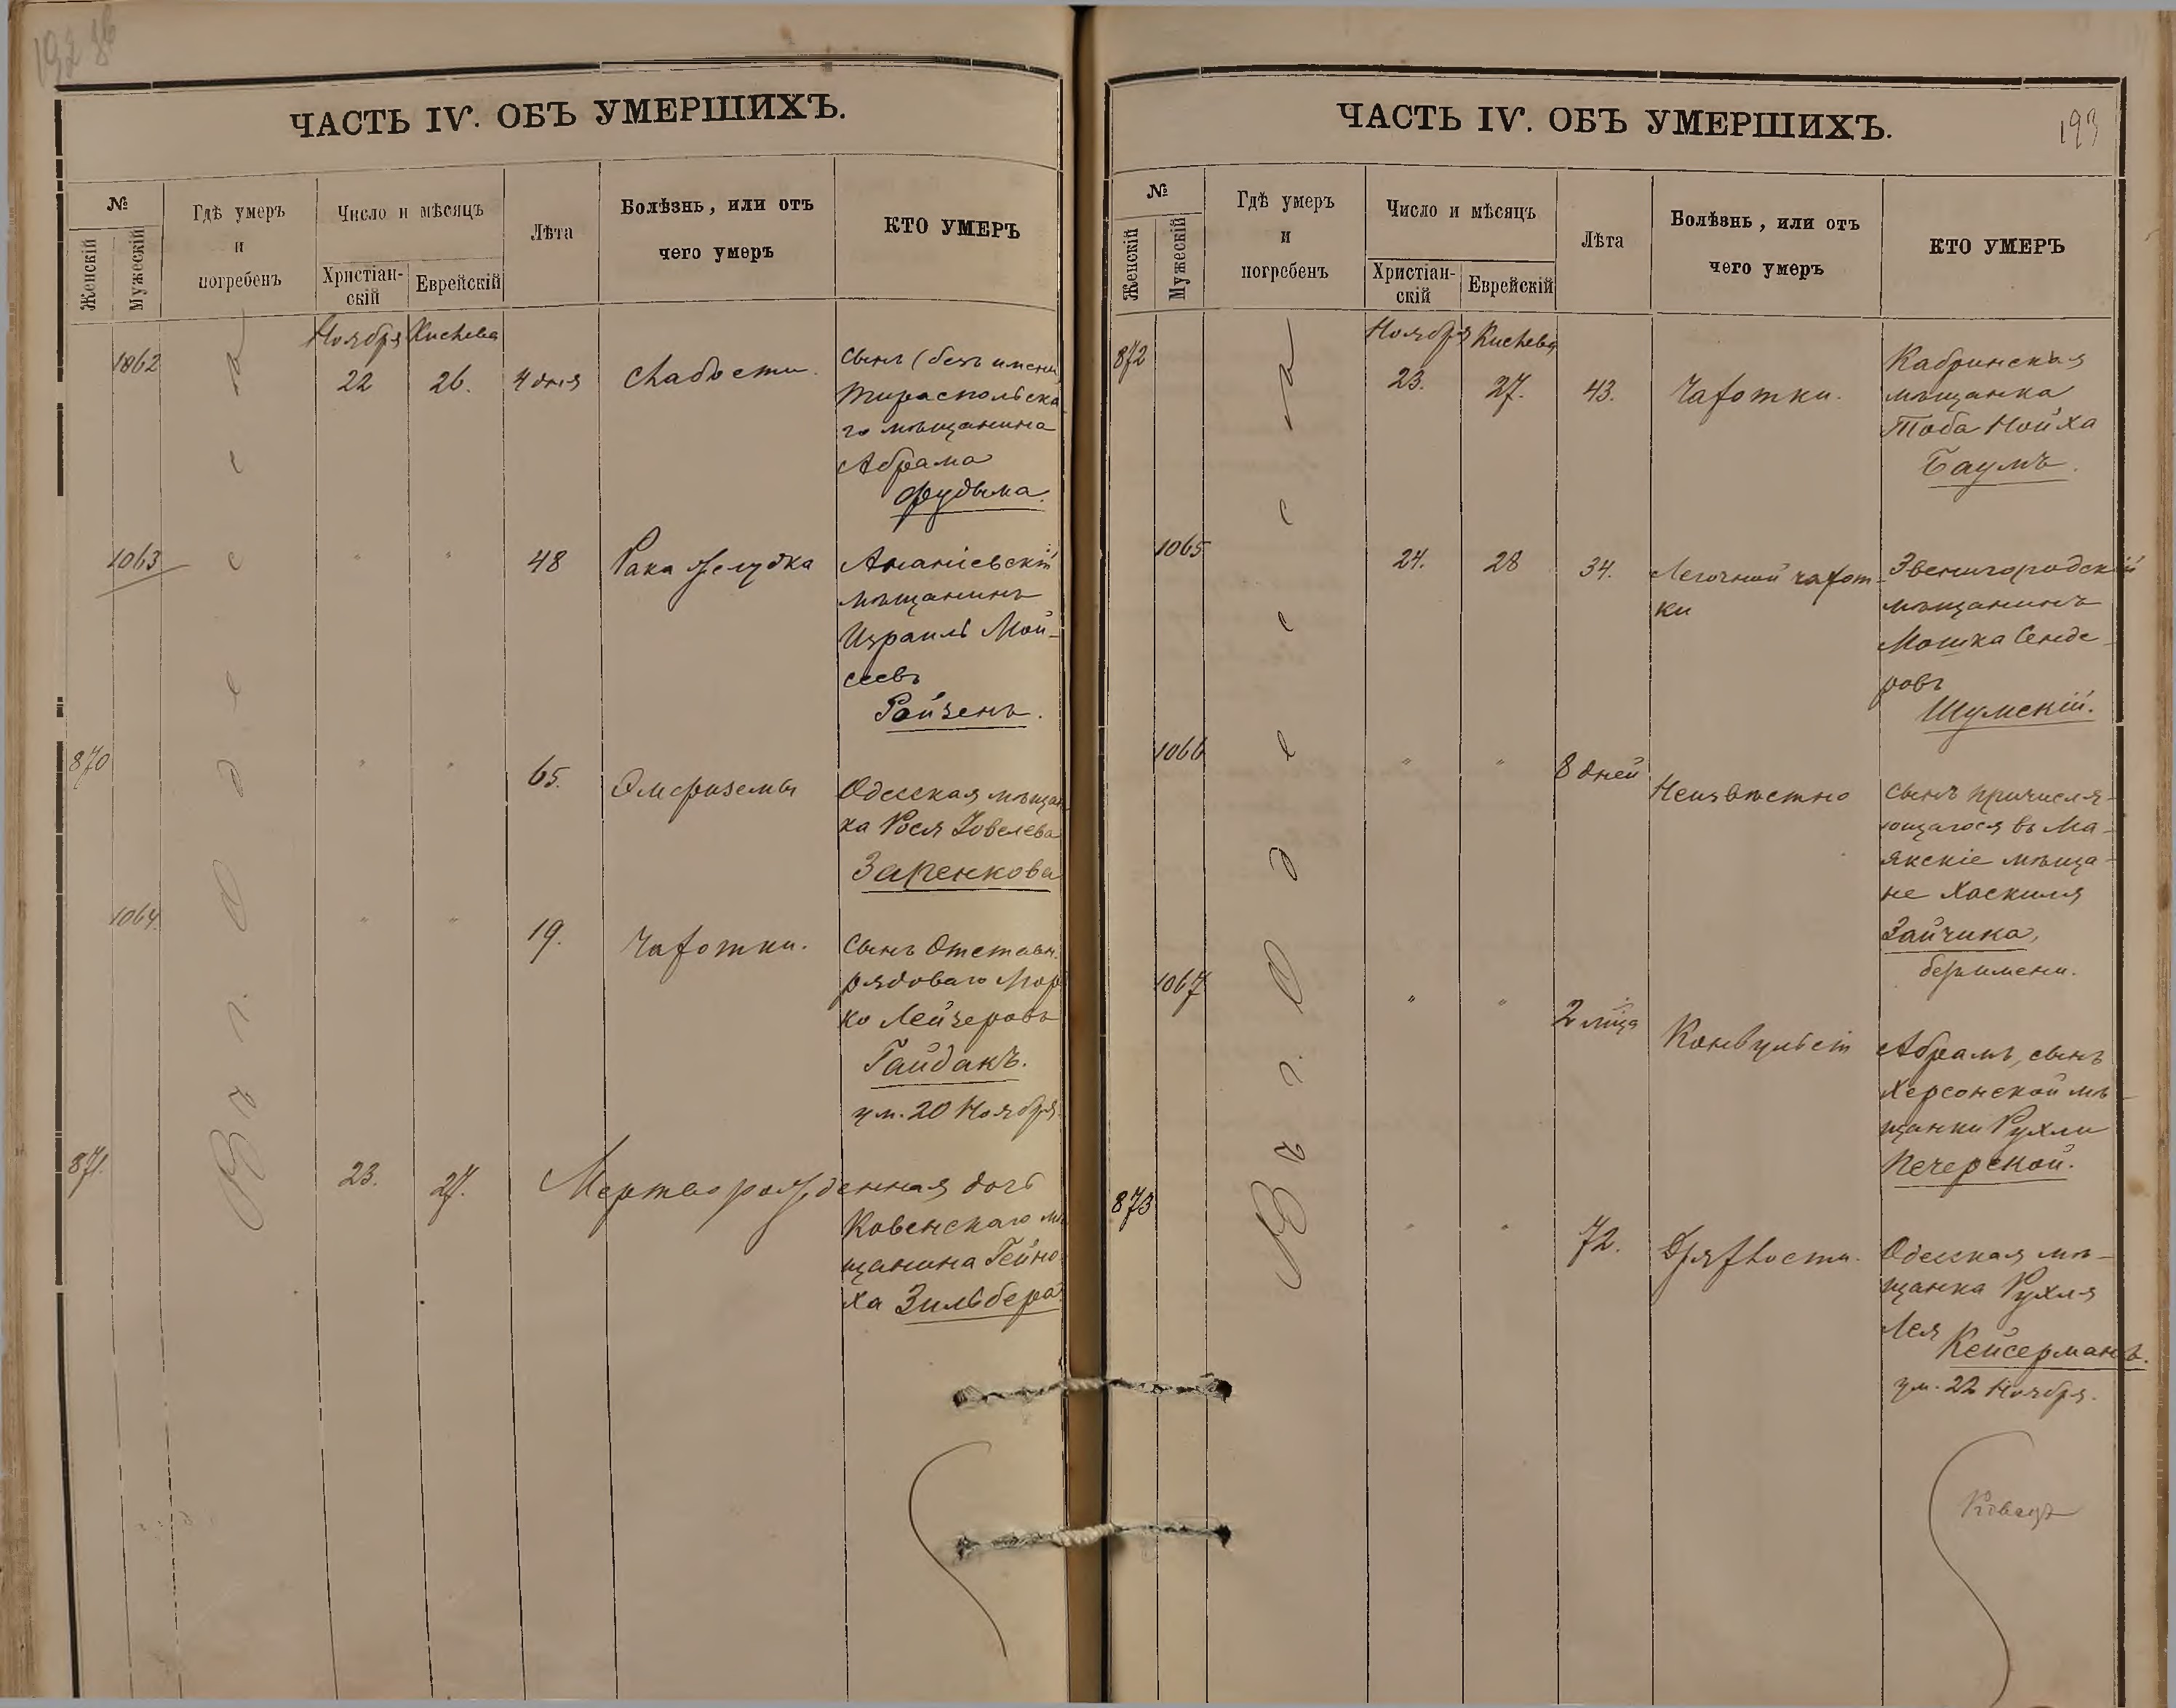 192 об
ЧАСТЬ IV. ОБЪ УМЕРШИХЪ.
№
Женскій
Мужескій
Гдѣ умеръ
и
погребенъ
Число и мѣсяцъ
Христіан-
скій
Еврейскій
Лѣта
Болѣзнь, или отъ
чего умеръ
КТО УМЕРЪ
Въ г. Одессѣ
Ноября Кислева
1062 22 26. 4 дня Слабости. Сынъ (безъ имени)
Тираспольска
го мѣщанина
Абрама
Фудыма.
1063 " " 48 Рака желудка Ананіевскій
мѣщанинъ
Израиль Мой-
сеевъ
Ройзенъ.
870 " " 65. Эмфиземы Одесская мѣщан
ка Рося Іовелева
Заренкова
1064. " " 19. Чахотки. Сынъ Отставн.
рядоваго Мор
ко Лейзеровъ
Гайдакъ.
ум. 20 Ноября.
871. 23. 27. Мертворожденная дочь
Ковенскаго мѣ
щанина Гейно
ха Зильбера
ЧАСТЬ IV. ОБЪ УМЕРШИХЪ.
193
№
Женскій
Мужескій
Гдѣ умеръ
и
погребенъ
Число и мѣсяцъ
Христіан-
скій
Еврейскій
Лѣта
Болѣзнь, или отъ
чего умеръ
КТО УМЕРЪ
Въ г. Одессѣ
Ноября Кислева
872 23. 27. 43. Чахотки. Кабринская
мѣщанка
Тоба Нойха
Баумъ.
1065 24. 28 34. Легочной чахот- Звенигородскій
ки мѣщанинъ
Мошка Сенде-
ровъ
Шумскій.
1066 " " 8 дней Неизвѣстно Сынъ причисля-
ющагося въ Ма-
якскіе мѣща-
не Хаскиля
Зайчика,
безъ имени.
1067 " " 2 м-ца Конвульсіи Абрамъ, сынъ
Херсонской мѣ-
щанки Рухли
Печерской.
873 " " 72. Дряхлости. Одесская мѣ-
щанка Рухля
Лея Кейсерманъ.
ум. 22 Ноября.